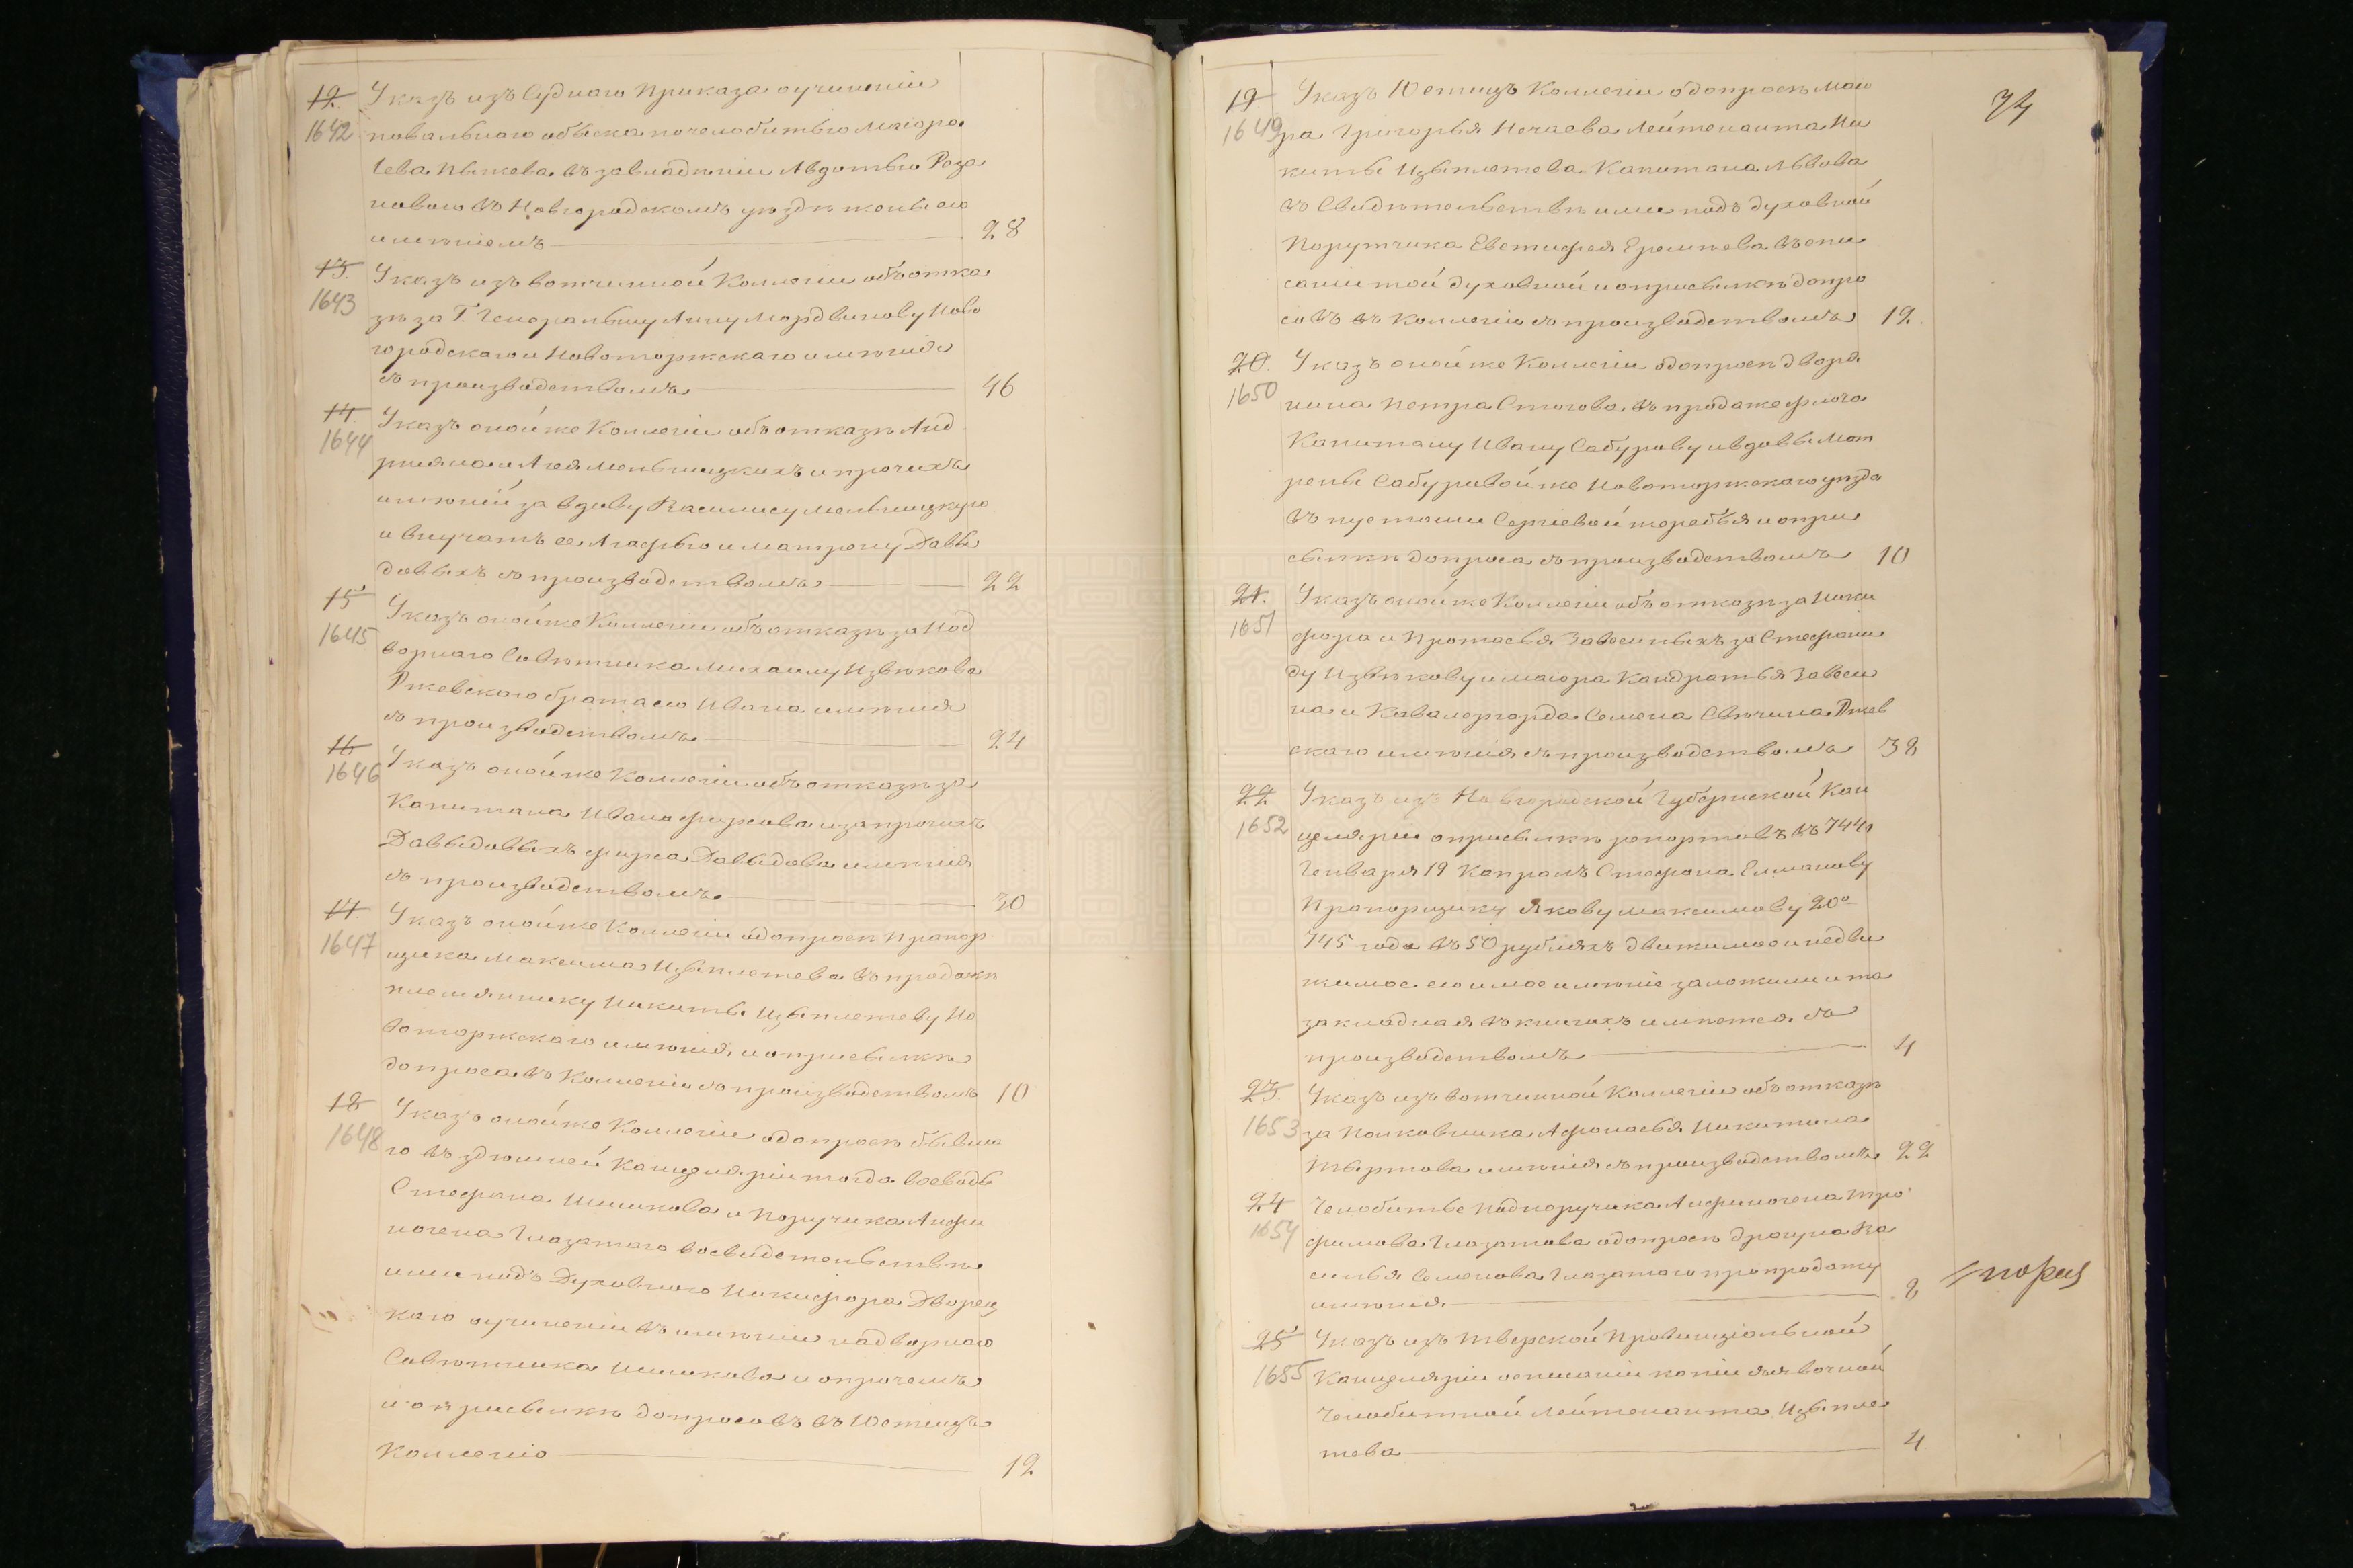 12. Указъ изъ Суднаго Приказа о учиненіи
1642 повальнаго обыска по челобитью Маіора
Лева Пыжова въ завладѣніи Авдотьею Роза
новою въ Новгородскомъ уѣздѣ жены его
имѣніемъ 28
13. Указъ изъ вотчинной Коллегіи объ отка
1643 зѣ за Г. Генеральшу Анну Мордвинову Ново
городскаго и Новоторжскаго имѣнія
съ производствомъ 46
14. Указъ оной же Коллегіи объ отказѣ Анд
1644
имѣній за вдову Василису Мельницкую
и внучатъ ее Агафью и Матрену Давы
довыхъ съ производствомъ 22
15 Указъ оной же Коллегіи объ отказѣ за Над
1645 ворнаго Совѣтника Михаилу Извѣкова
Ржевскаго брата его Ивана имѣнія
съ производствомъ 24
16 Указъ оной же Коллегіи объ отказѣ за
1646 Капитана Ивана Фирсова и за прочихъ
Давыдовыхъ Фирса Давыдова имѣнія
съ производствомъ 30
17. Указъ оной же Коллегіи о допросѣ Прапор
1647 щика Максима Изъплетева въ продажѣ
племяннику Никитѣ Изъплетеву Но
воторжскаго имѣнія, и о присылкѣ
допроса въ Коллегію съ производствомъ 10
18 Указъ оной же Коллегіи о допросѣ бывша
1648 го въ здѣшней Канцеляріи тогда воеводы
Стефана Шишкова и Поручика Анфи
ногена Глазатаго во свидетельствѣ
ими надъ Духовною Никифора Дворец
каго о учиненіи въ имѣніи надворнаго
Совѣтника Шишкова и о прочемъ
и о присылкѣ допросовъ въ Юстицъ
Коллегію 12
34
19 Указъ Юстицъ Коллегіи о допросѣ Маіо
1649 ра Григорья Нечаева Лейтенанта Ни
киты Изъплетева Капитана Львова
въ Свидѣтельствѣ ими надъ духовной
Порутчика Евстифея Еремѣева въ опи
саніи той духовной и о присылкѣ допро
совъ въ Коллегію съ производствомъ 12.
20. Указъ оной же Коллегіи о допросѣ дворя
1650 нина Петра Стогова въ продаже флота
Капитану Ивану Сабурову и вдовѣ Мат
рены Сабуровой же Новоторжскаго уѣзда
въ пустоши Сергіевой жеребья и о при
сылкѣ допроса съ производствомъ 10
21. Указъ оной же Коллегіи объ отказѣ за Ники
1651 фора и Протасья Завесиныхъ за Стефани
ду Извѣкову и маіора Кандратья Завеси
на и Кавалергарда Семена Свѣчина Ржев
скаго имѣнія съ производствомъ 38
22 Указъ изъ Новгородской Губернской Кан
1652 целяріи о присылкѣ репортовъ въ 744
Генваря 19 Капралъ Стефана Елманову
Прапорщику Якову Максимову 20°
745 года въ 50 рубляхъ движимое и недви
жимое его имое имѣніе заложили и та
закладная въ книгахъ имѣется съ
производствомъ 4
23. Указъ изъ вотчинной Коллегіи объ отказѣ
1653 за Полковника Афонасья Никитина
имѣнія съ производствомъ 22
24 Челобитье Подпоручика Анфиногена Тро
1654 фимова Глазатова о допросѣ драгуна Ва
силья Семенова Глазатаго про продажу
имѣнія 8
25 Указъ изъ Тверской Провинціальной
1655 Канцеляріи о списаніи копіи явочной
Челобитной Лейтенанта Изъпле
тева 4